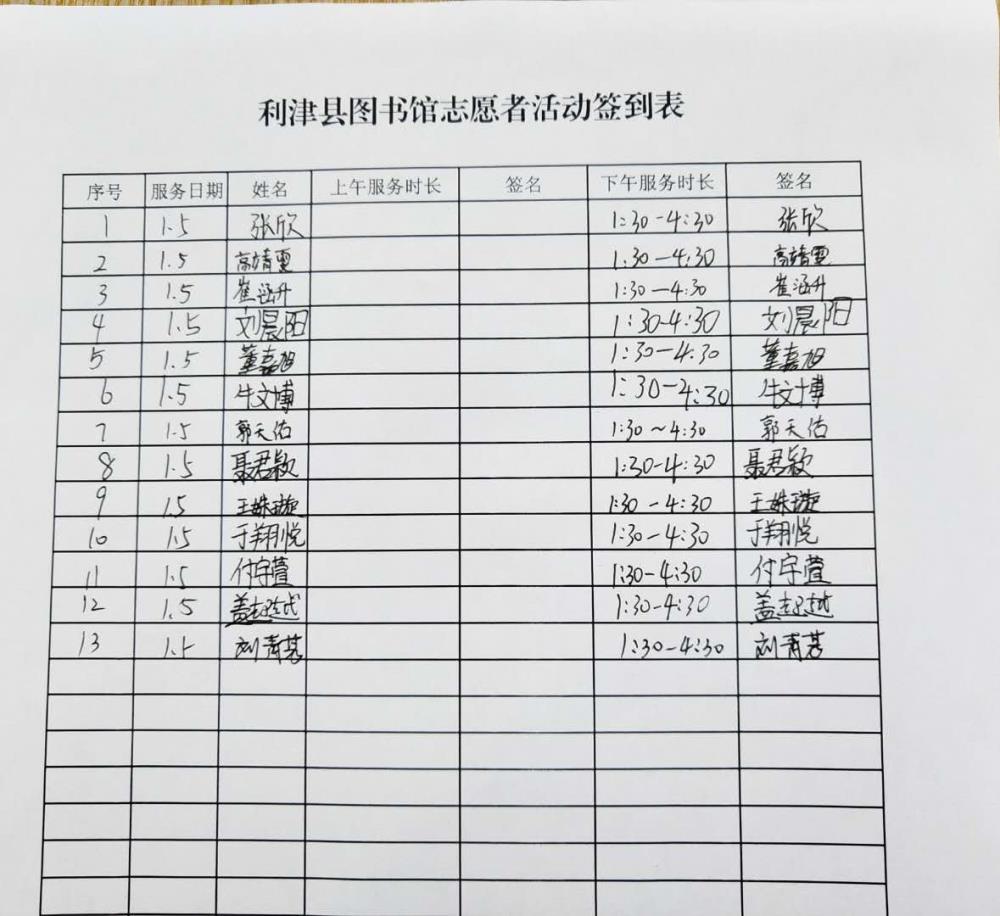 利津县图书馆志愿者活动签到表
序号 服务日期 姓名 上午服务时长 签名 下午服务时长 签名
1 1.5 张欣 1:30-4:30 张欣
2 1.5 高靖雯 1:30-4:30 高靖雯
3 1.5 崔涵升 1:30-4:30 崔涵升
4 1.5 刘晨阳 1:30-4:30 刘晨阳
5 1.5 董嘉旭 1:30-4:30 董嘉旭
6 1.5 牛文博 1:30-4:30 牛文博
7 1.5 郭天佑 1:30~4:30 郭天佑
8 1.5 聂君颖 1:30-4:30 聂君颖
9 1.5 王姝璇 1:30-4:30 王姝璇
10 1.5 于翔悦 1:30-4:30 于翔悦
11 1.5 付宇萱 1:30-4:30 付宇萱
12 1.5 盖起越 1:30-4:30 盖起越
13 1.5 1:30-4:30